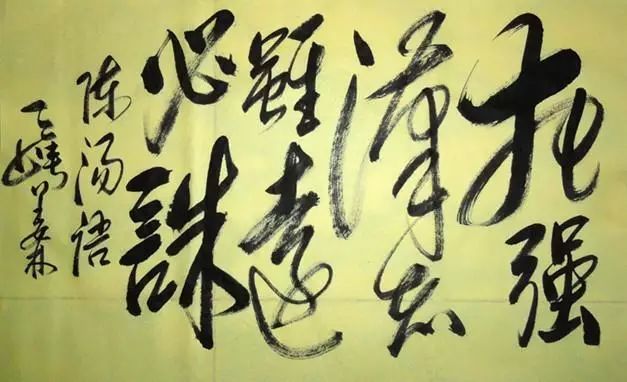 犯强
漢者
雖遠
必誅
陈汤语